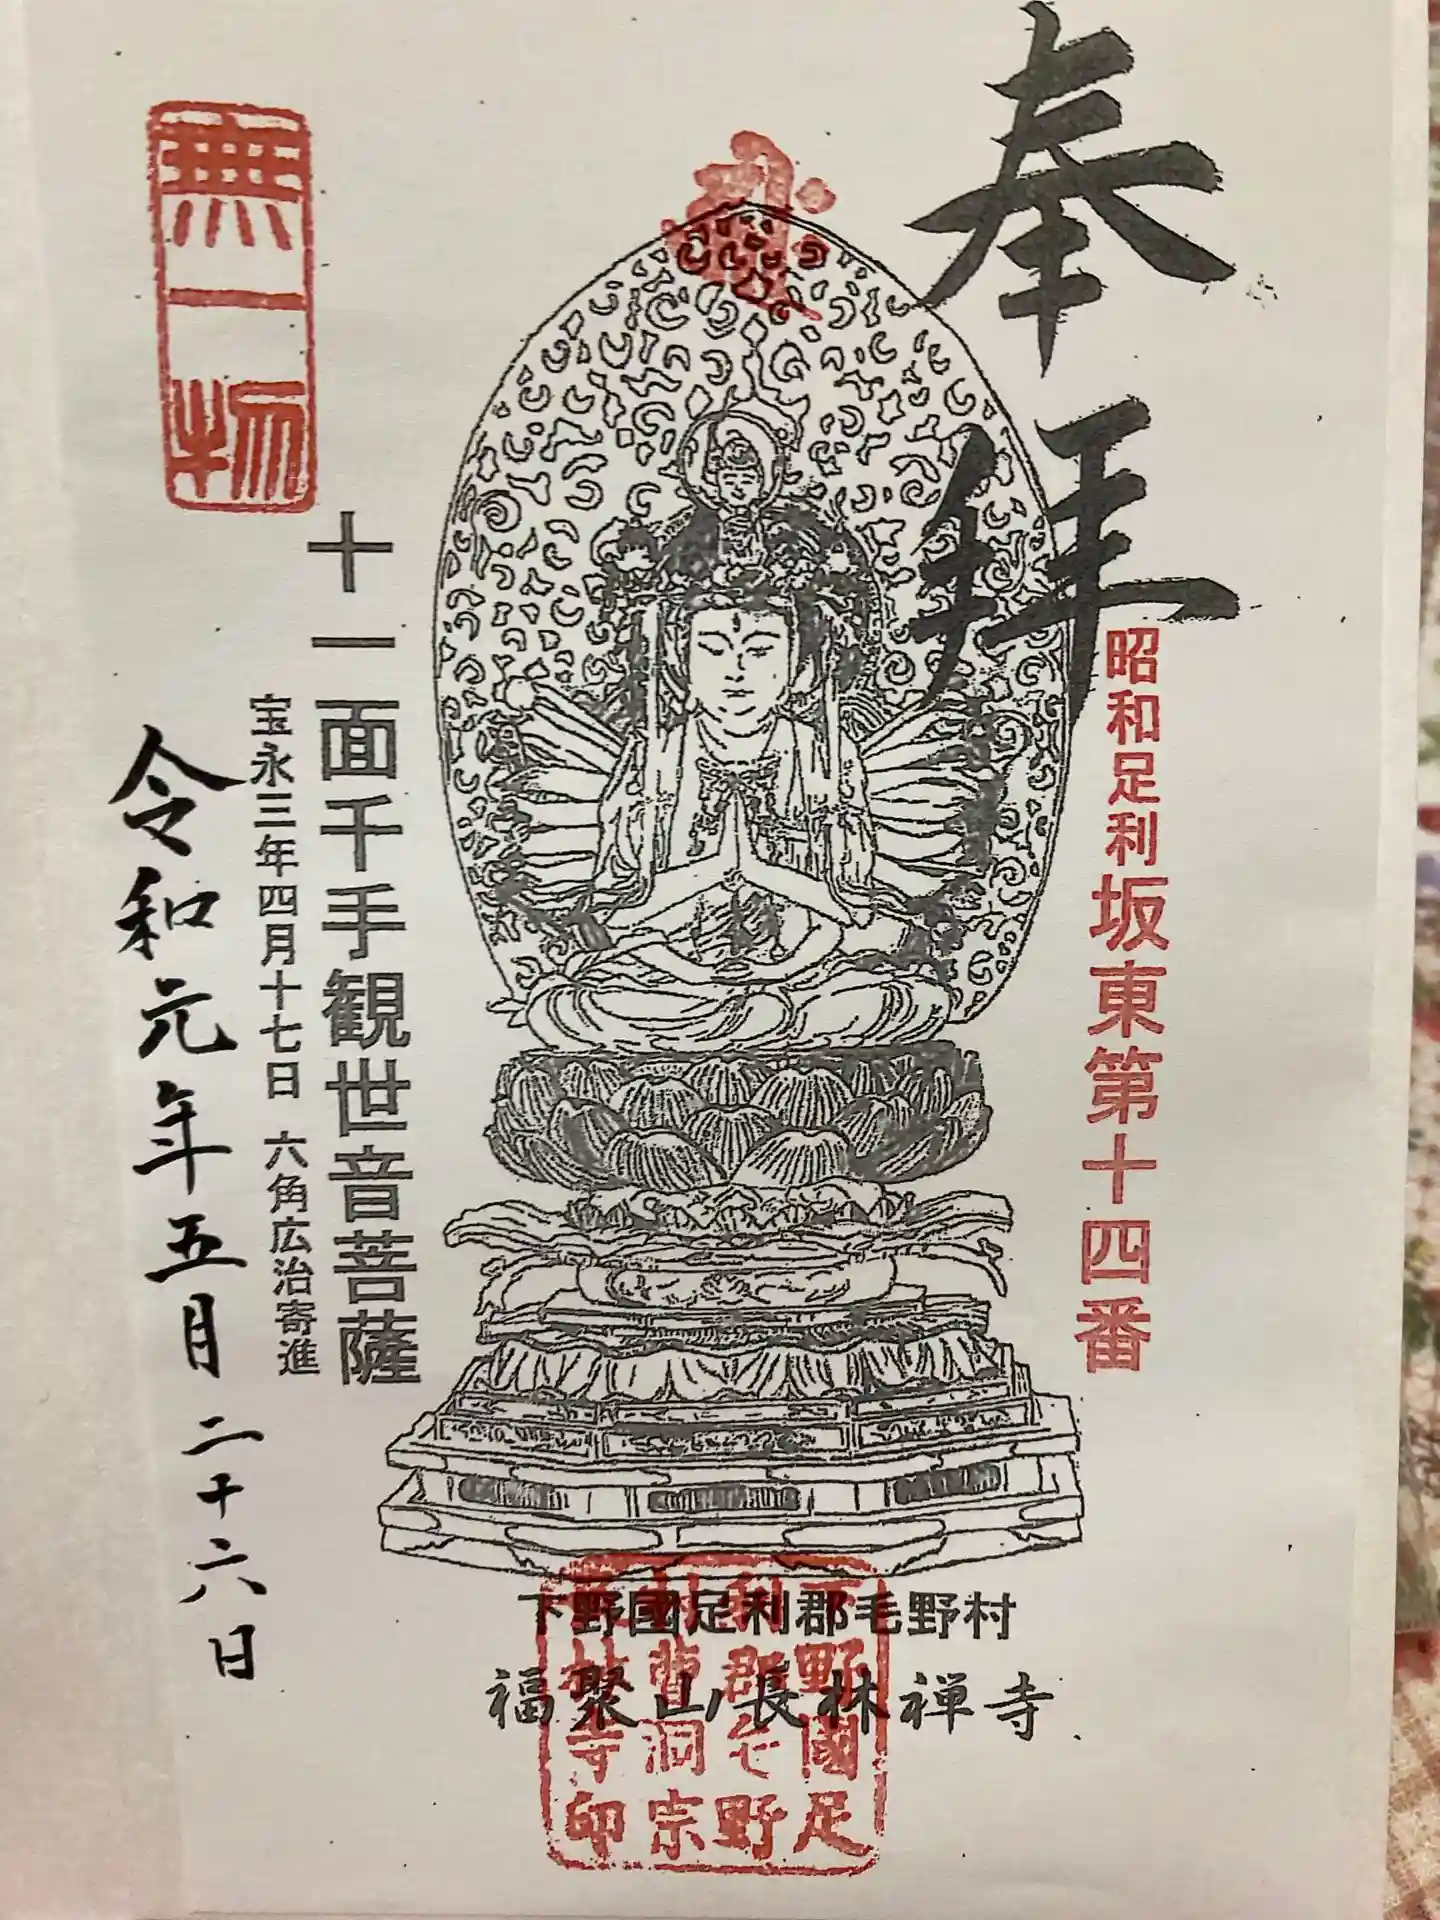 奉拜
昭和足利坂東第十四番
無一物
十一面千手観世音菩薩
宝永三年四月十七日 六角広治寄進
令和元年五月二十六日
下野國足利郡毛野村
福聚山長林禅寺
野國足
利郡毛野
曹洞宗
林寺印